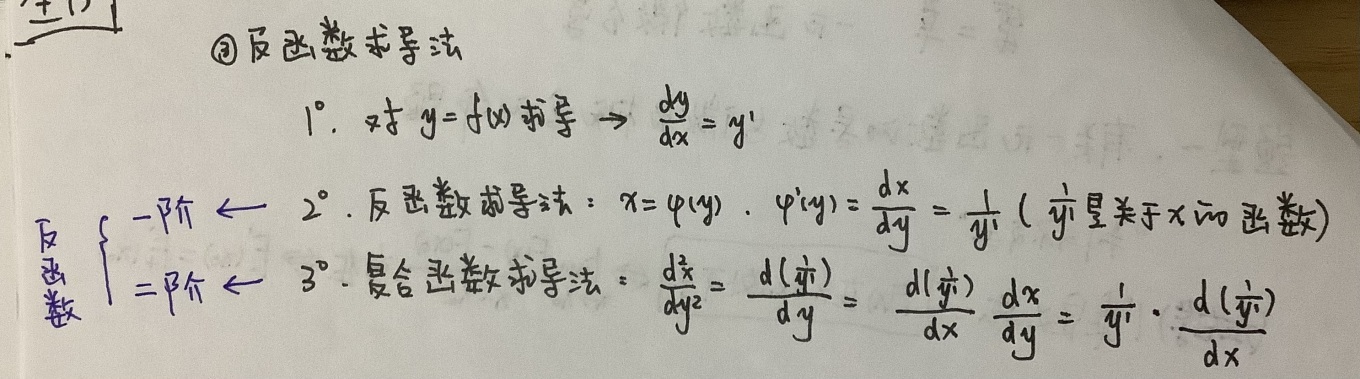 ③反函数求导法
1°. 对 y=f(x) 求导 → dy/dx = y'
反函数 { 一阶 ← 2°. 反函数求导法: x=φ(y). φ'(y) = dx/dy = 1/y' ( 1/y' 是关于x的函数)
二阶 ← 3°. 复合函数求导法: d²x/dy² = d(1/y')/dy = d(1/y')/dx dx/dy = 1/y' · d(1/y')/dx